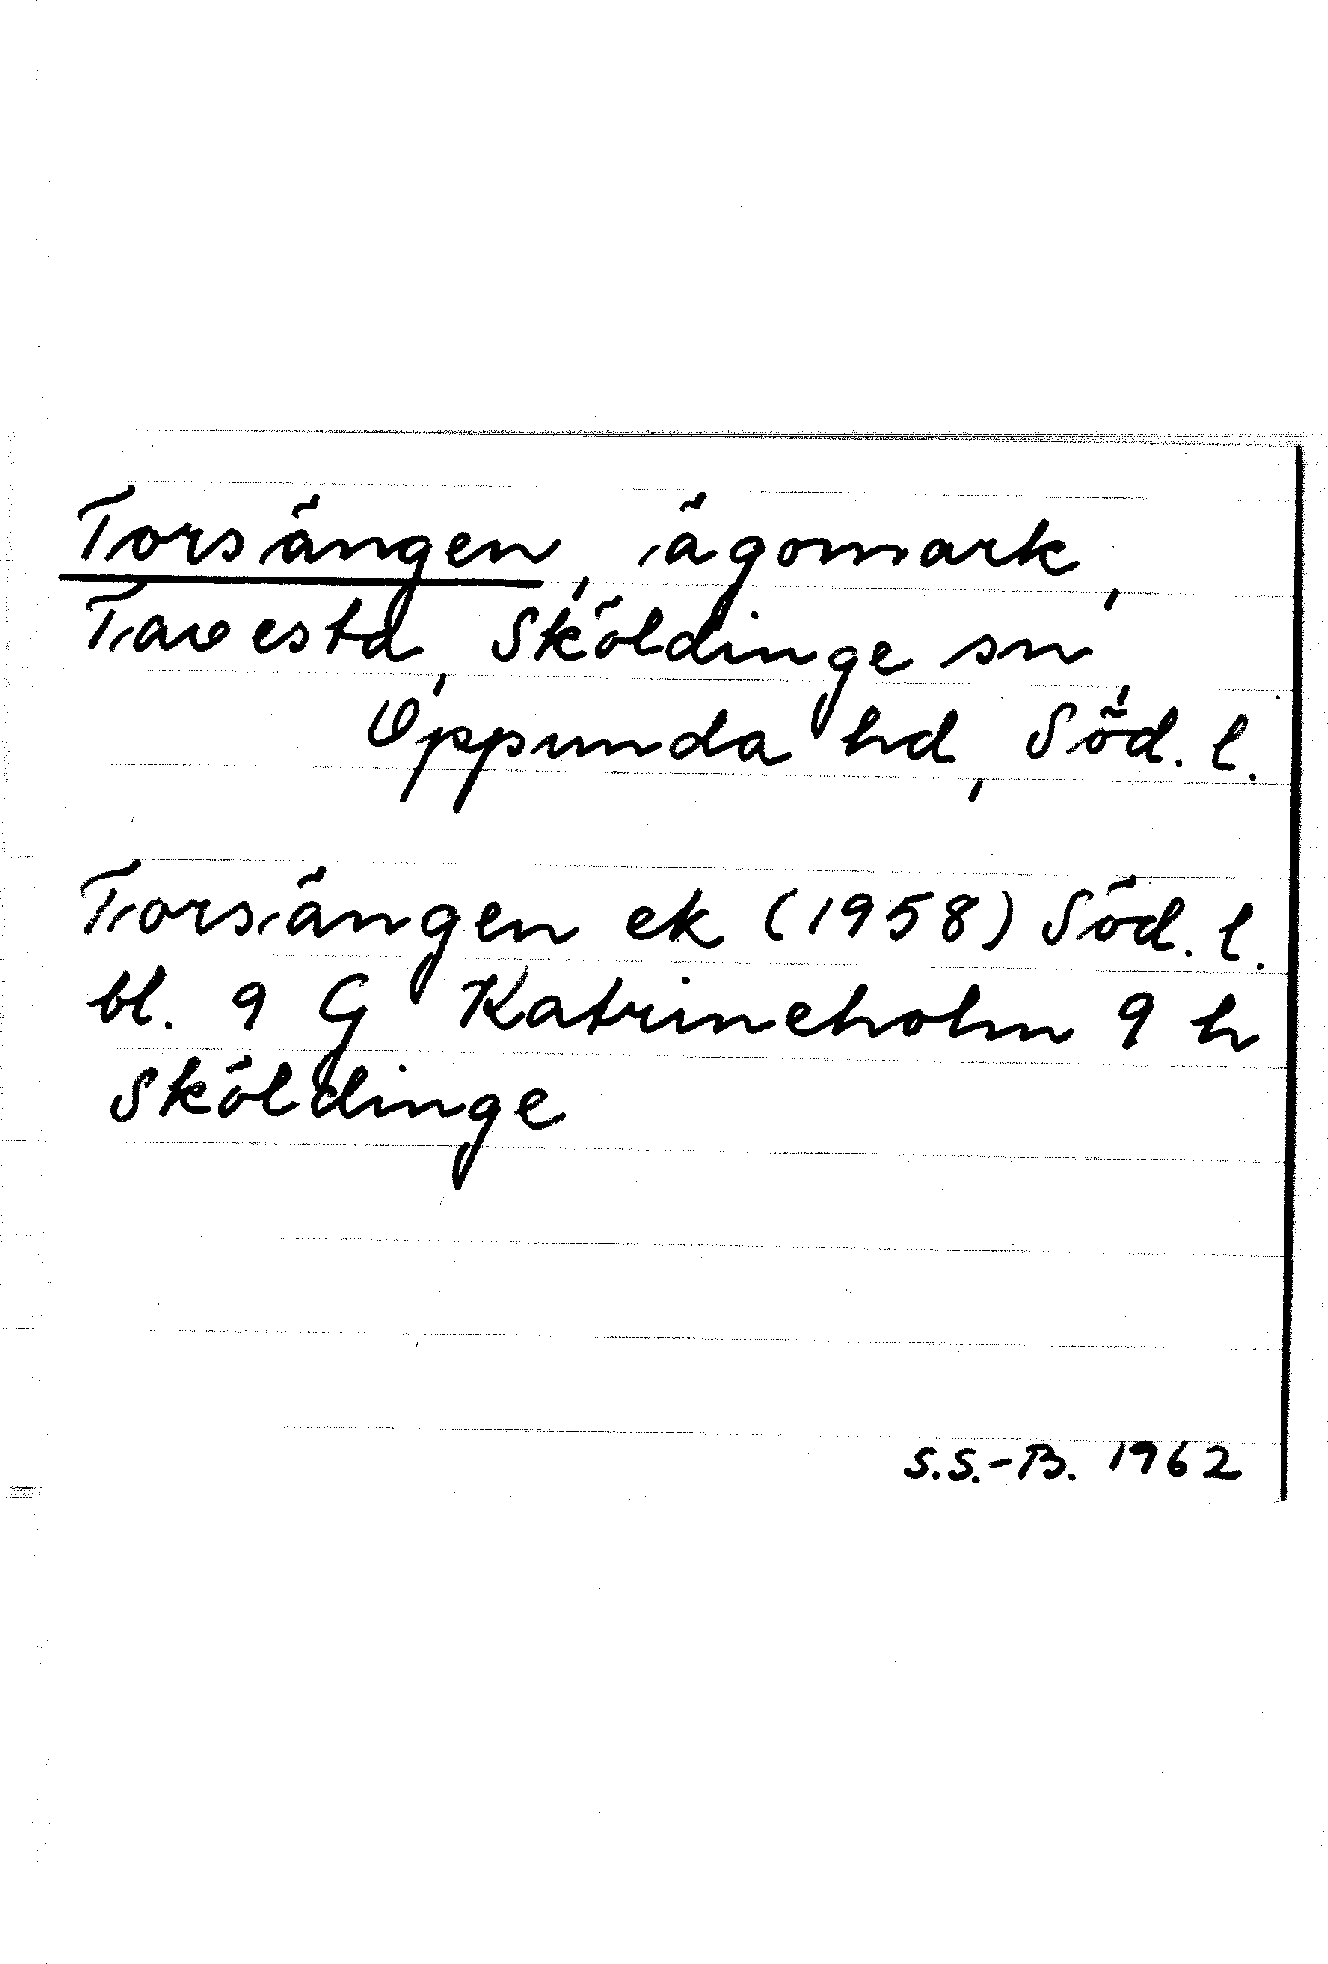 Torsängen, ägomark,
Tavesta, Sköldinge sn,
Oppunda hd, Söd. l.
Torsängen ek (1958) Söd. l.
bl. 9 G Katrineholm 9 h
Sköldinge
S.S.-B. 1962